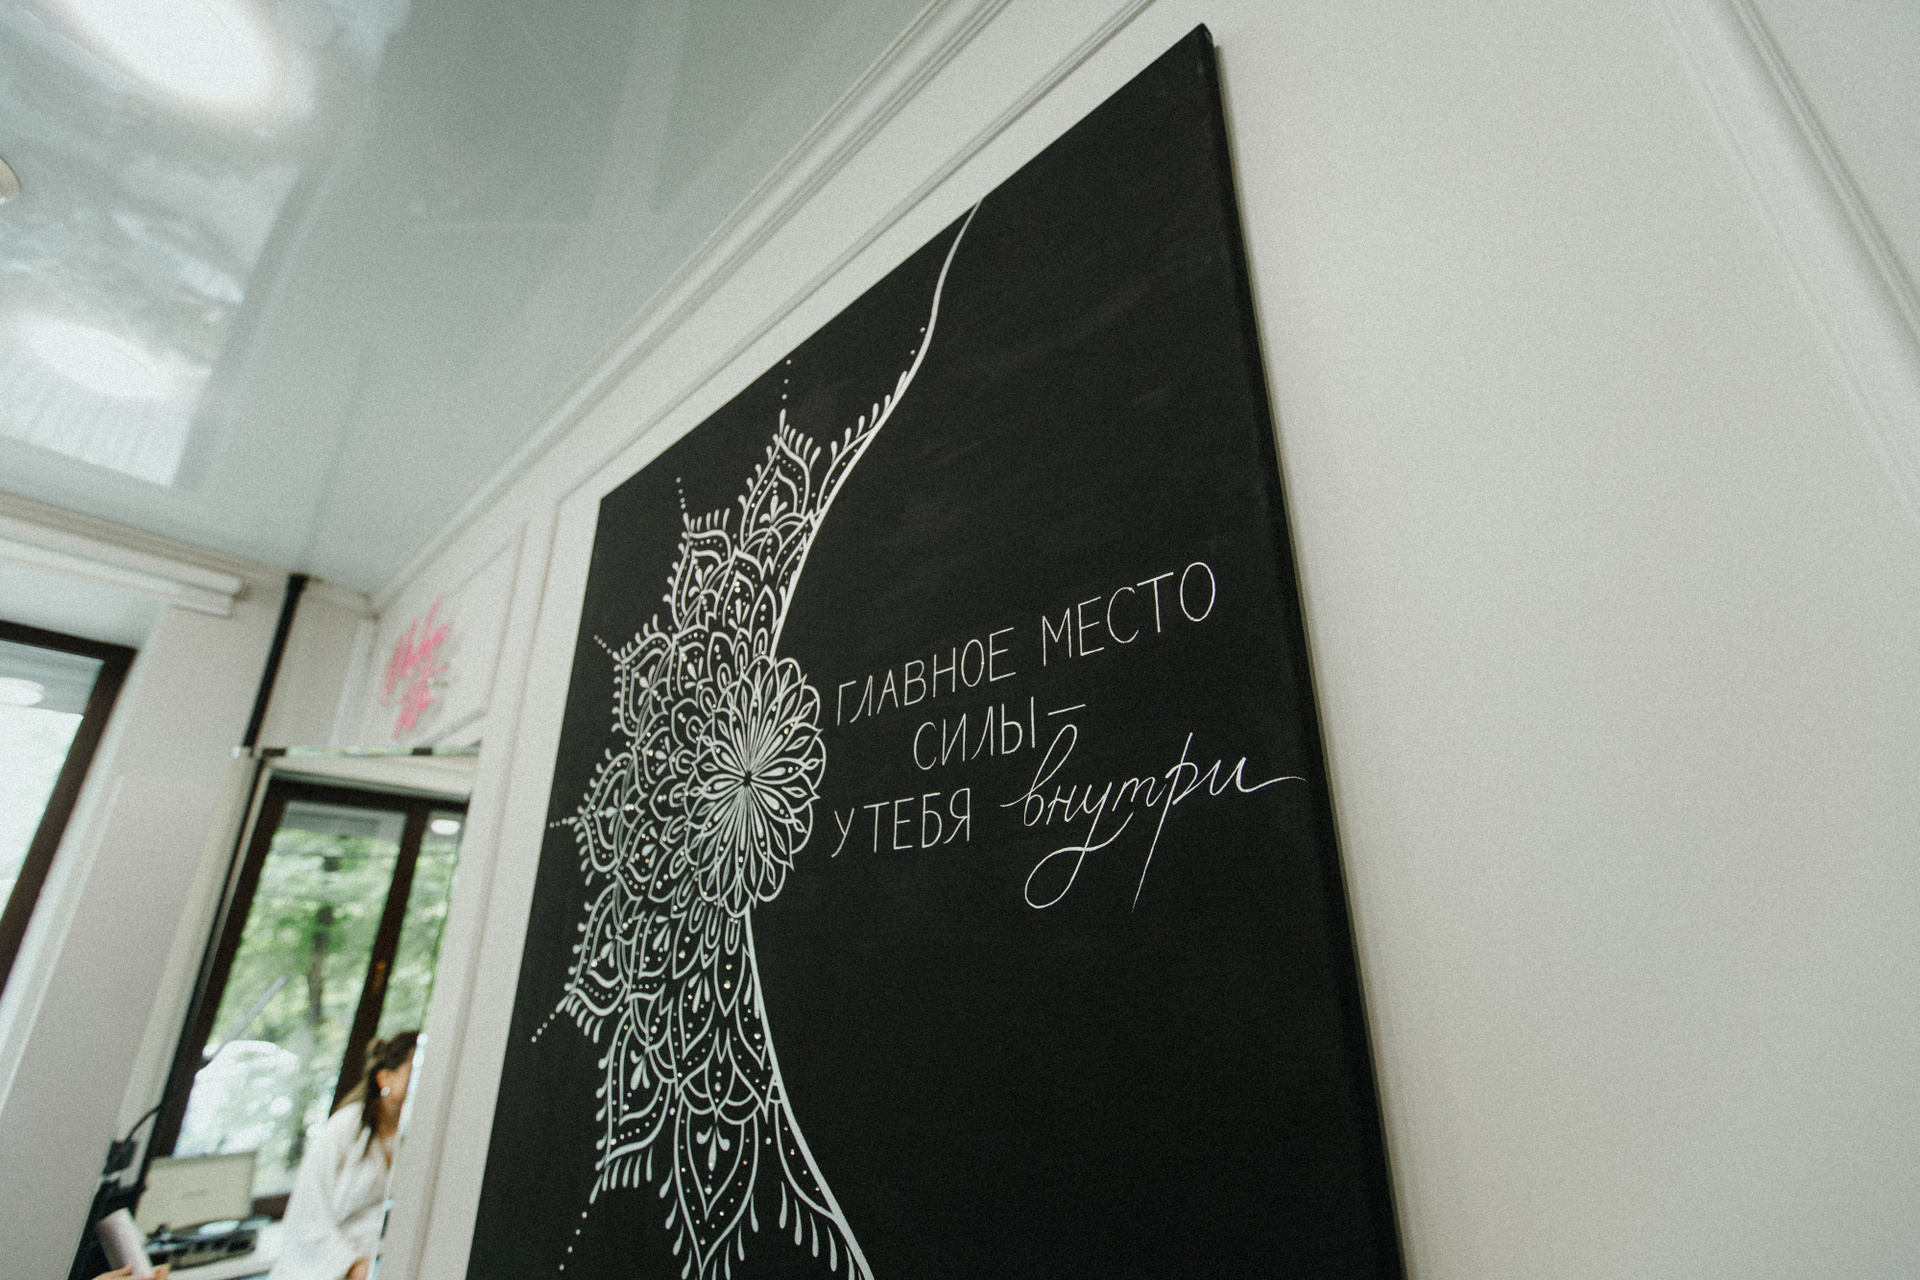 ГЛАВНОЕ МЕСТО
СИЛЫ—
У ТЕБЯ внутри